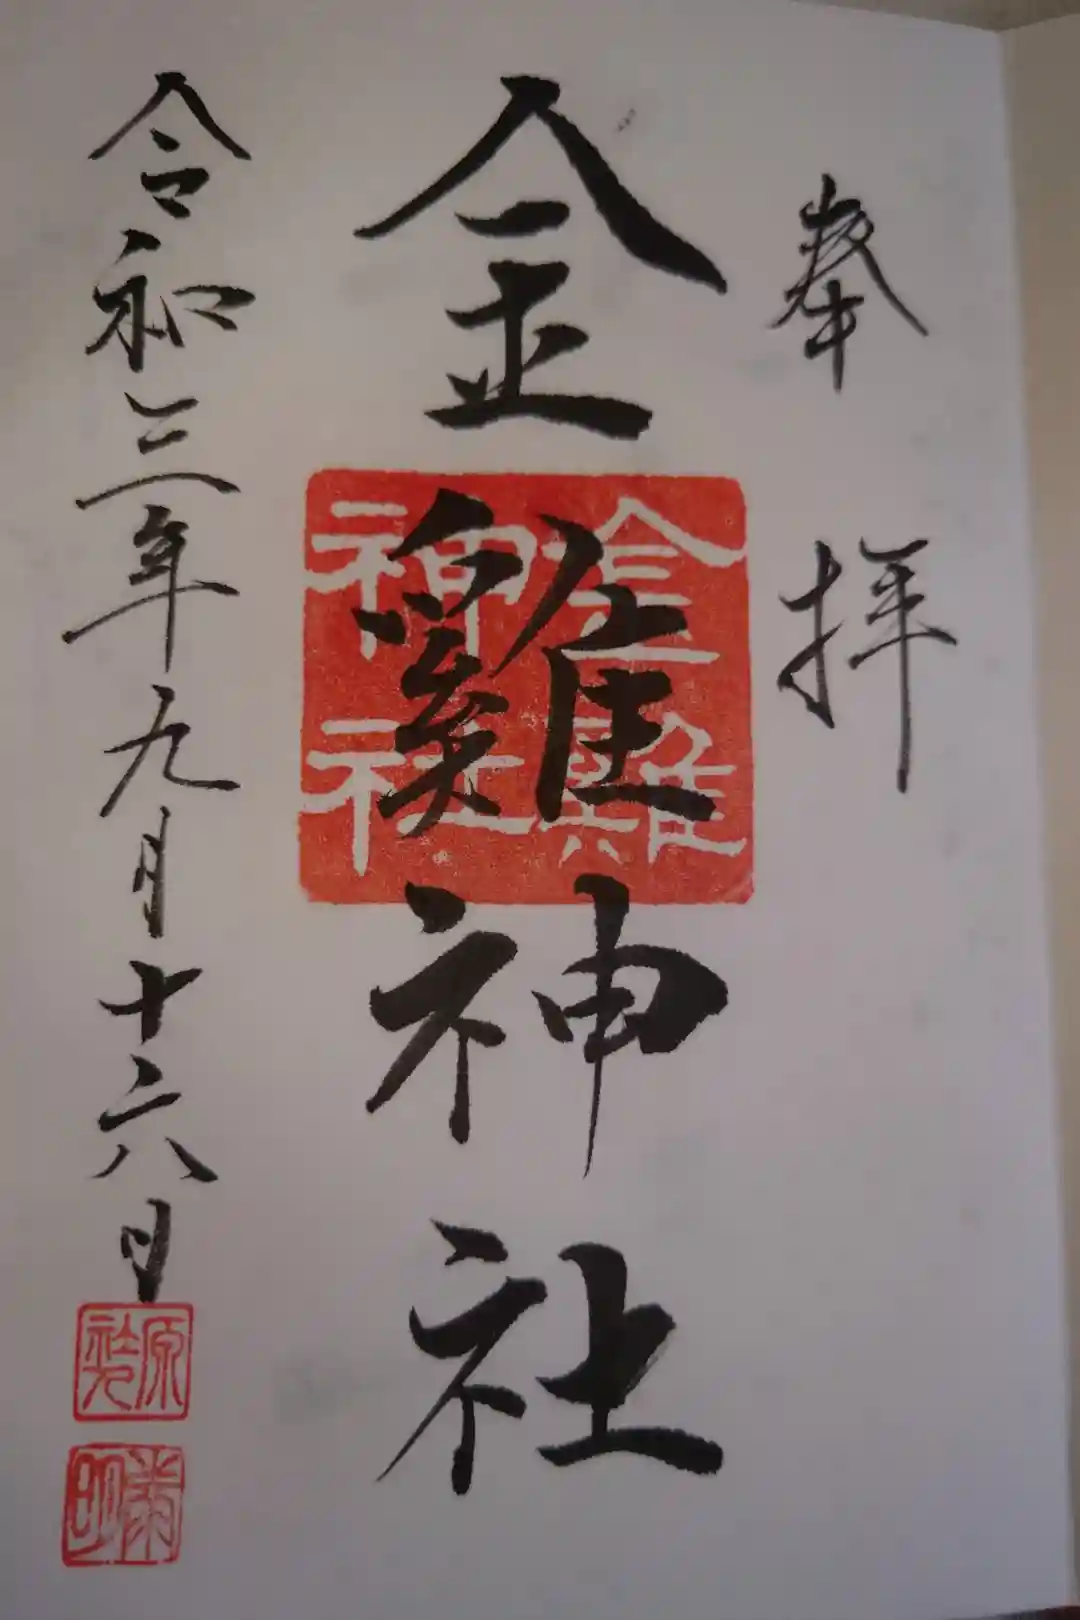 奉拝
金雞神社
金雞
神社
令和三年九月十六日